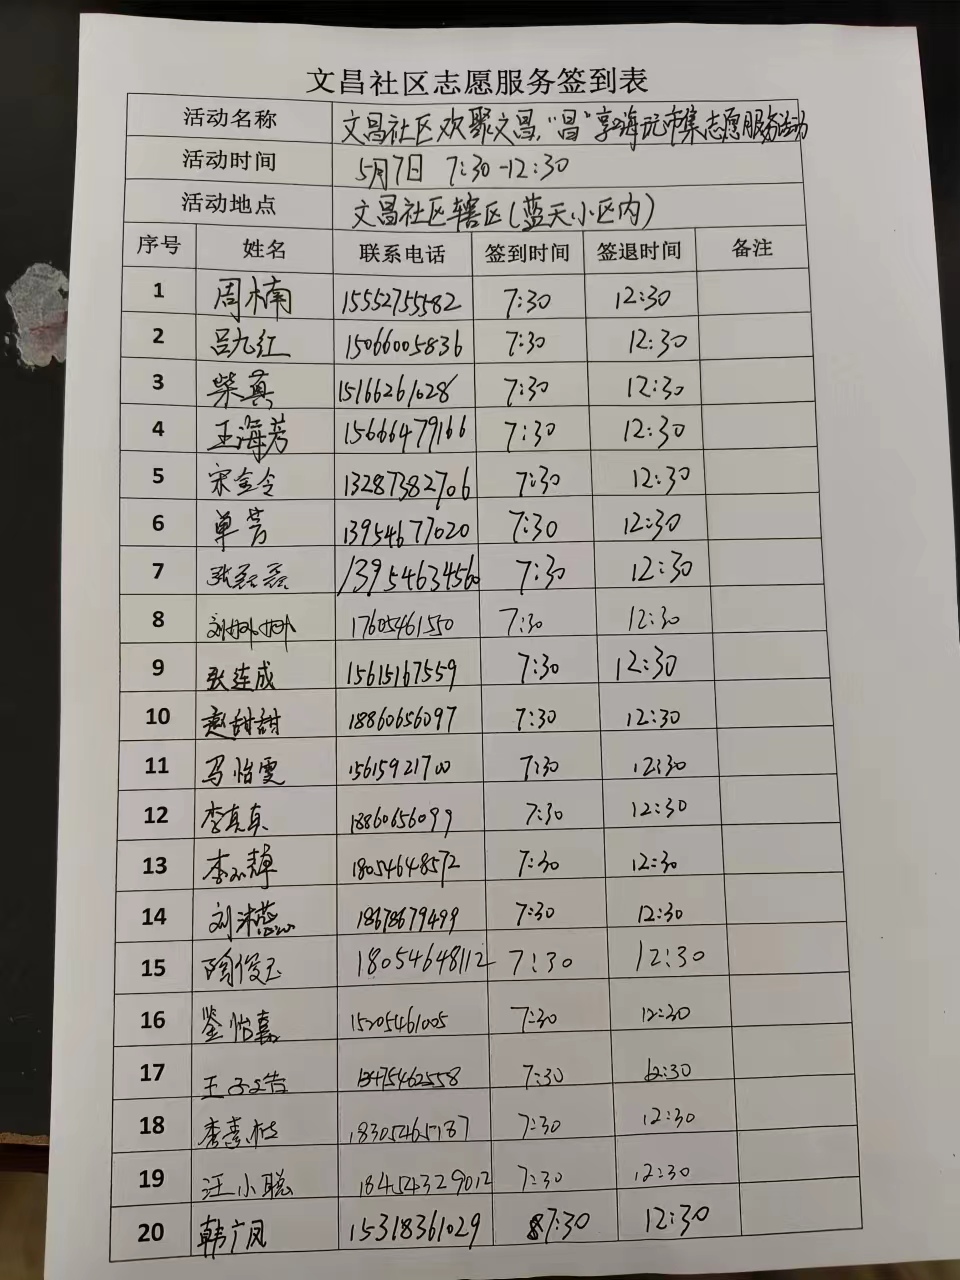 文昌社区志愿服务签到表
活动名称 文昌社区欢聚文昌,"昌"享海沅市集志愿服务活动
活动时间 5月7日 7:30-12:30
活动地点 文昌社区辖区(蓝天小区内)
序号 姓名 联系电话 签到时间 签退时间 备注
1 周楠 15552755582 7:30 12:30
2 吕九红 15066005836 7:30 12:30
3 柴真 15166261028 7:30 12:30
4 王海芳 15666479166 7:30 12:30
5 宋金令 13287382706 7:30 12:30
6 单芳 13954677020 7:30 12:30
7 张磊磊 13954634560 7:30 12:30
8 刘娜娜 17605461550 7:30 12:30
9 张连成 15615167559 7:30 12:30
10 赵甜甜 18860656097 7:30 12:30
11 马怡雯 15615921700 7:30 12:30
12 李真真 18860656099 7:30 12:30
13 李 18054648572 7:30 12:30
14 刘沐蕊 18678679499 7:30 12:30
15 陶俊玉 18054648112 7:30 12:30
16 怡嘉 15205461005 7:30 12:30
17 王子文浩 13475462558 7:30 12:30
18 李喜 18305465187 7:30 12:30
19 汪小聪 18454329012 7:30 12:30
20 韩广凤 15318361029 7:30 12:30